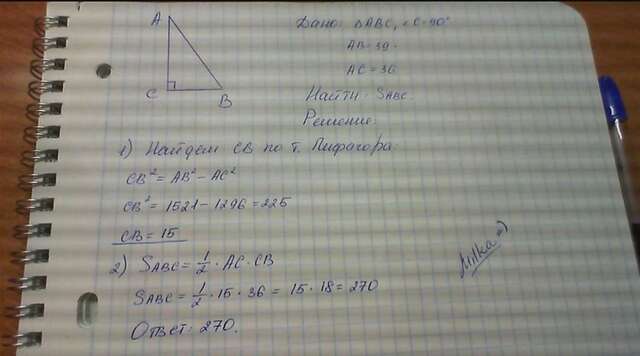 A
C
B
Дано: ΔABC, ∠C=90°
AB=39.
AC=36
Найти: SABC.
Решение:
1) Найдем CB по т. Пифагора:
CB²=AB²-AC²
CB²=1521-1296=225
CB=15
2) SABC=1/2·AC·CB
SABC=1/2·15·36=15·18=270
Ответ: 270.